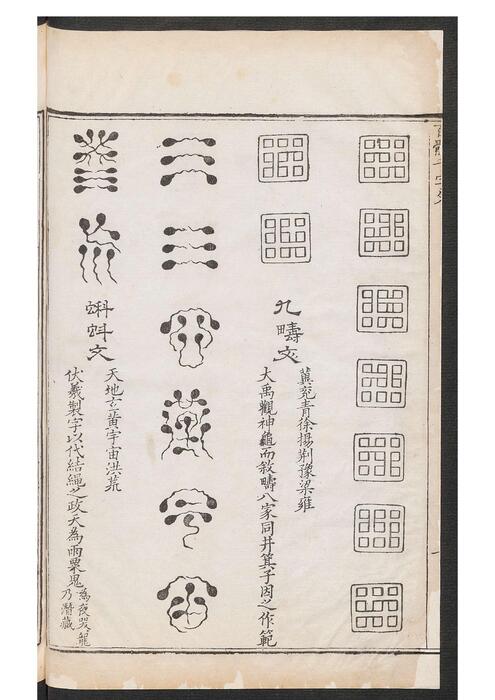 百體千字文
九疇文
冀兖青徐揚荆豫梁雍
大禹觀神龜而敘疇八家同井箕子因之作範
蝌蚪文
天地玄黃宇宙洪荒
伏羲製字以代結繩之政天為雨粟鬼
為夜哭龍
乃潛藏